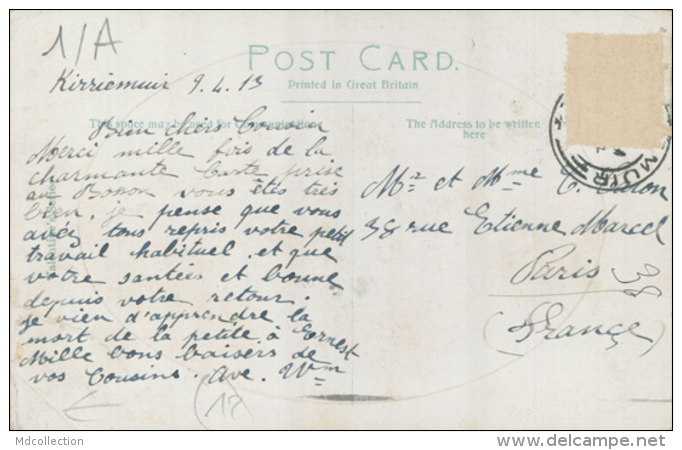 1/A
POST CARD.
Printed in Great Britain
Kirriemuir 9.4.13
This space may be used for communication
The Address to be written
here
Bien chers Cousin
Merci mille fois de la
charmante Carte prise
au Bonon vous êtes très
bien, je pense que vous
avez tous repris votre petit
travail habituel et que
votre santées et bonne
depuis votre retour.
Je vien d'apprendre la
mort de la petite à Ernest
Mille bons baisers de
vos Cousins. Ave. Wm
Mr et Mme C.
38 rue Etienne Marcel
Paris
38
(France)
MUIR
Mdcollection
www.delcampe.net